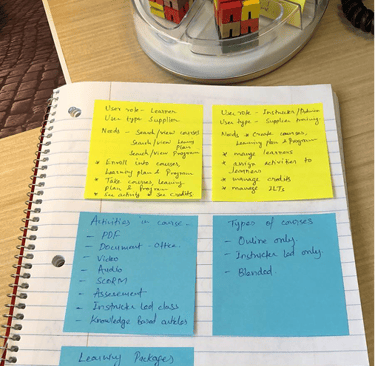 User role - Learner
User type Supplier
Needs - Search/view courses
Search/view Learning Plans
Search/view Program
* Enroll into courses,
Learning plan & Program
* Take courses, learning
plan & Program
* See activity & see credits
User role - Instructor/
User type - Supplier training
Needs * Create courses,
Learning plan & Program
* manage learners
* assign activities to
learners
* manage credits
* manage ILTs
Activities in course -
- PDF
- Document - office
- Video
- Audio
- SCORM
- Assessment
- Instructor Led class
- Knowledge Based articles
Types of courses
- Online only
- Instructor Led only
- Blended
Learning Packages